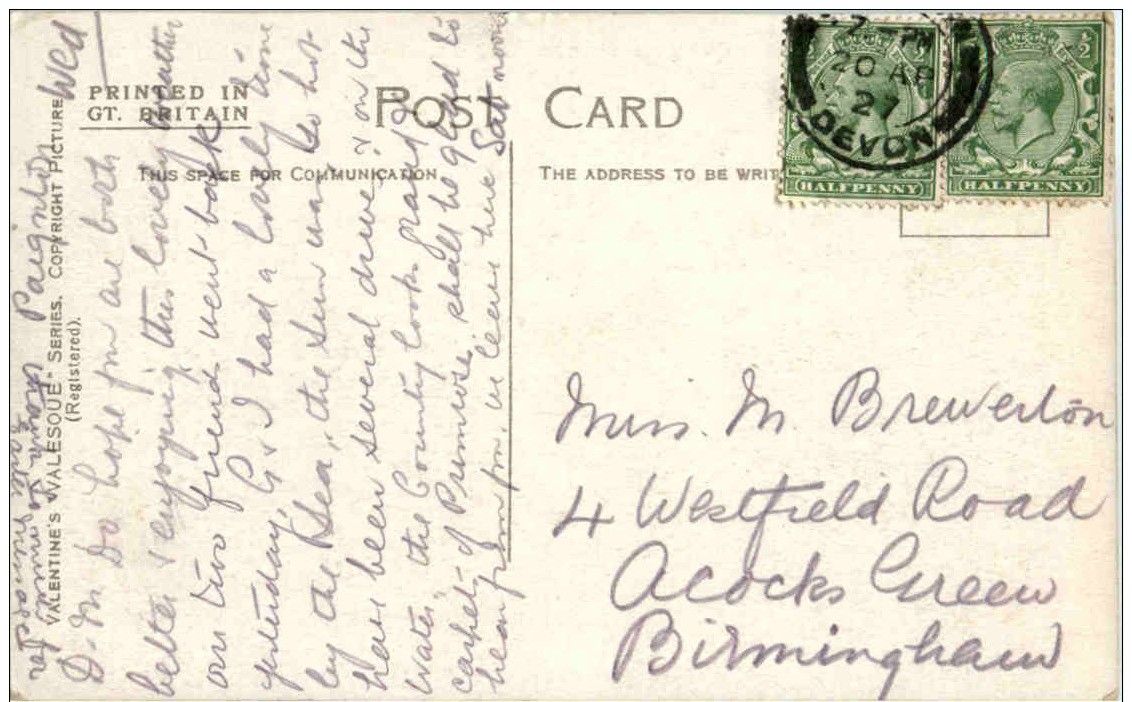 PRINTED IN
GT. BRITAIN
POST CARD
THIS SPACE FOR COMMUNICATION.
THE ADDRESS TO BE WRIT
VALENTINE'S "VALESQUE" SERIES. COPYRIGHT PICTURE
(Registered).
20 AP
27
DEVON
HALFPENNY
HALFPENNY
Paignton Wed
D. M. Do hope you are both
better & enjoying this lovely weather
our two friends went back
yesterday, G & I had a lovely time
by the Sea, the sun was so hot
have been several drives & on the
water, the Country looks grand
carpet of Primrose, shall be glad to
hear from you, we leave here Sat noon
Miss. M. Brewerton
4 Westfield Road
Acocks Green
Birmingham